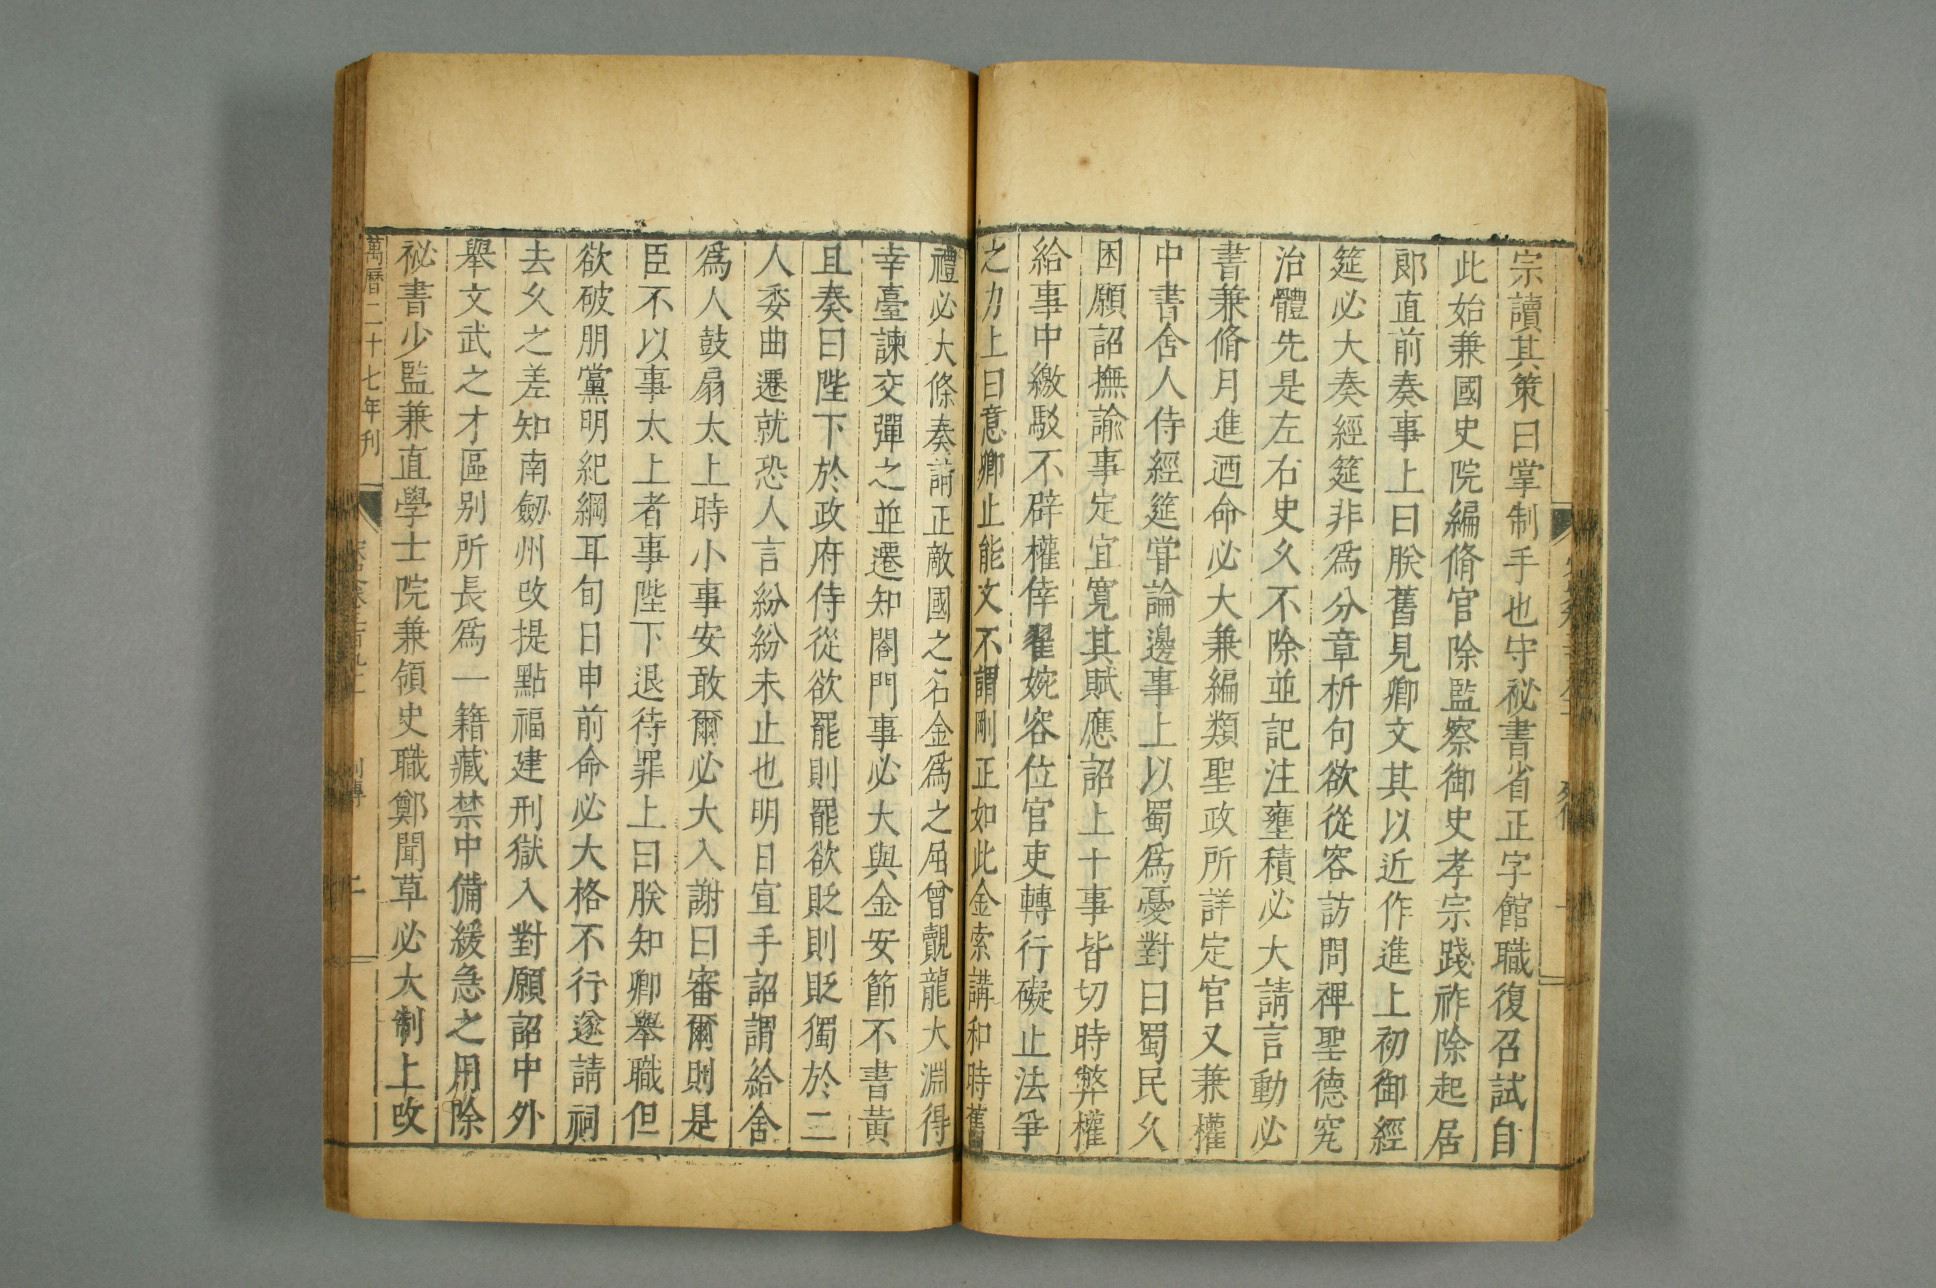 宗讀其策曰掌制手也守祕書省正字館職復召試自
此始兼國史院編脩官除監察御史孝宗踐祚除起居
郞直前奏事上曰朕舊見卿文其以近作進上初御經
筵必大奏經筵非爲分章析句欲從容訪問裨聖德究
治體先是左右史久不除並記注壅積必大請言動必
書兼脩月進迺命必大兼編類聖政所詳定官又兼權
中書舍人侍經筵甞論邊事上以蜀爲憂對曰蜀民久
困願詔撫諭事定宜寛其賦應詔上十事皆切時弊權
給事中繳駁不辟權倖翟婉容位官吏轉行礙止法爭
之力上曰意卿止能文不謂剛正如此金索講和時舊
禮必大條奏請正敵國之名金爲之屈曾覿龍大淵得
幸臺諫交彈之並遷知閤門事必大與金安節不書黄
且奏曰陛下於政府侍從欲罷則罷欲貶則貶獨於二
人委曲遷就恐人言紛紛未止也明日宣手詔謂給舍
爲人鼓扇太上時小事安敢爾必大入謝曰審爾則是
臣不以事太上者事陛下退待罪上曰朕知卿舉職但
欲破朋黨明紀綱耳旬日申前命必大格不行遂請祠
去久之差知南劒州改提點福建刑獄入對願詔中外
舉文武之才區别所長爲一籍藏禁中備緩急之用除
祕書少監兼直學士院兼領史職鄭聞草必大制上改
萬曆二十七年刊
列傳
二